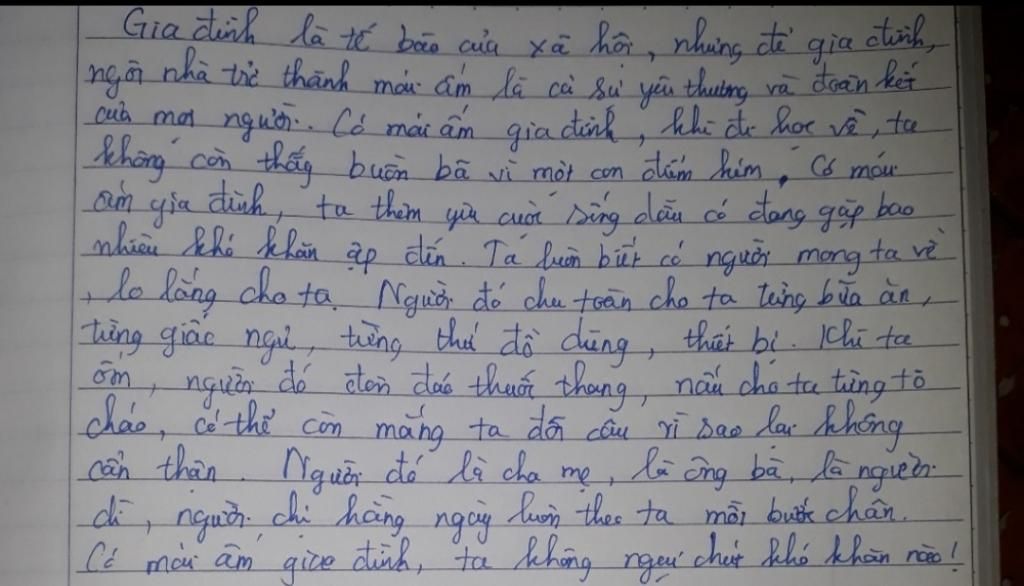 Gia đình là tế bào của xã hội, nhưng để gia đình,
ngôi nhà trở thành mái ấm là cả sự yêu thương và đoàn kết
của mọi người. Có mái ấm gia đình, khi đi học về, ta
không còn thấy buồn bã vì một con điểm kém. Có mái
ấm gia đình, ta thêm yêu cuộc sống dẫu có đang gặp bao
nhiêu khó khăn ập đến. Ta luôn biết có người mong ta về
, lo lắng cho ta. Người đó chu toàn cho ta từng bữa ăn,
từng giấc ngủ, từng thứ đồ dùng, thiết bị. Khi ta
ốm, người đó đôn đáo thuốc thang, nấu cho ta từng tô
cháo, có thể còn mắng ta đôi câu vì sao lại không
cẩn thận. Người đó là cha mẹ, là ông bà, là người
dì, người chị hằng ngày luôn theo ta mỗi bước chân.
Có mái ấm gia đình, ta không ngại chút khó khăn nào!